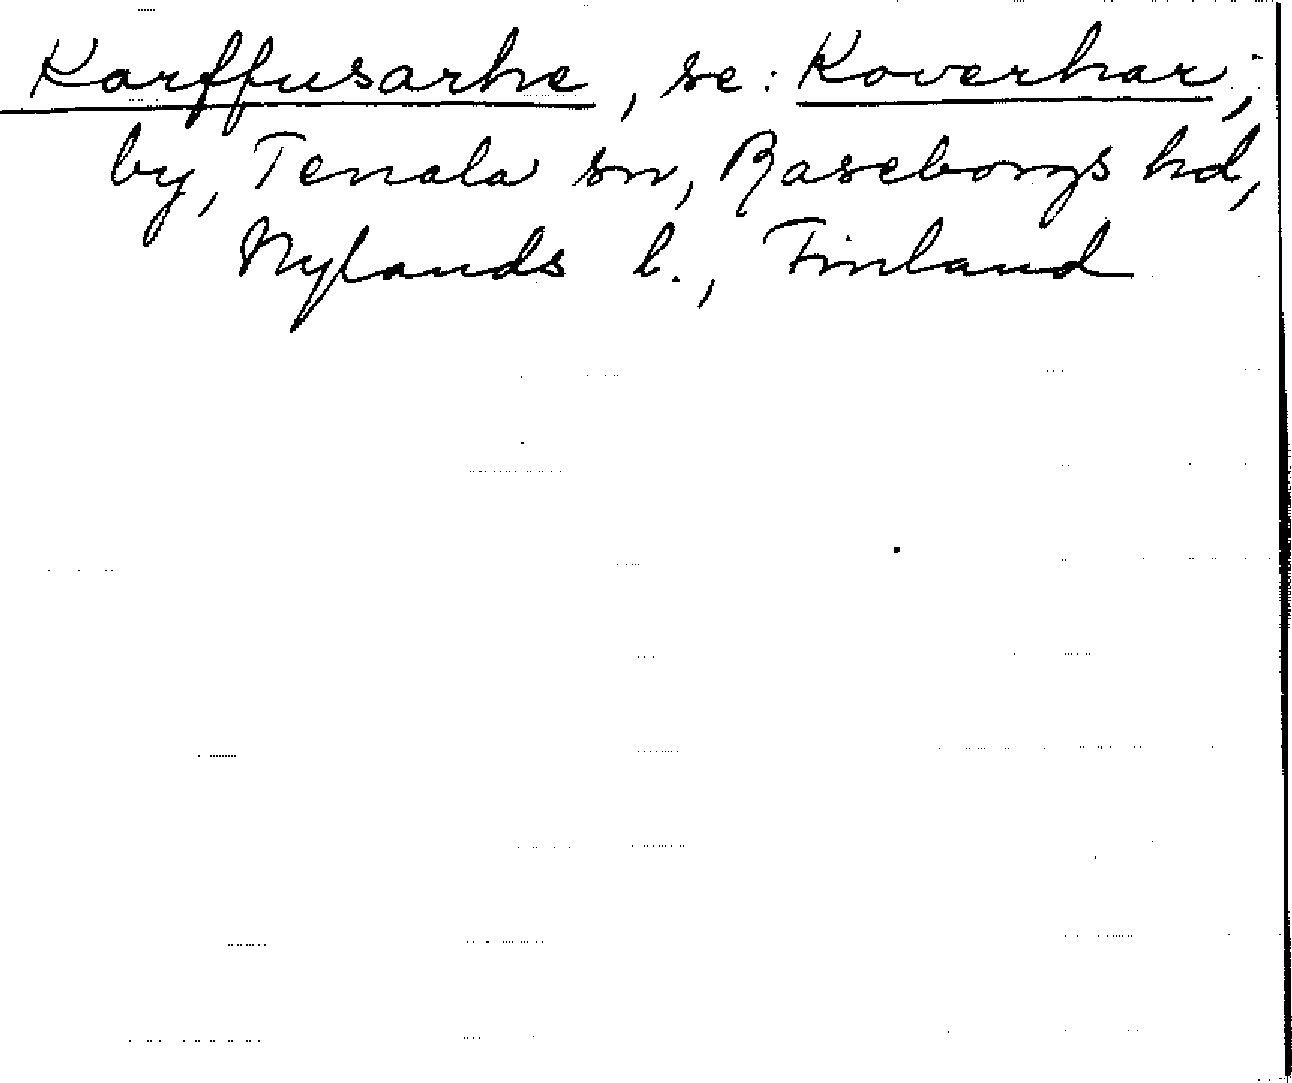 Korffusarhe, se: Koverhar;
by, Tenala sn, Raseborgs hd,
Nylands l., Finland